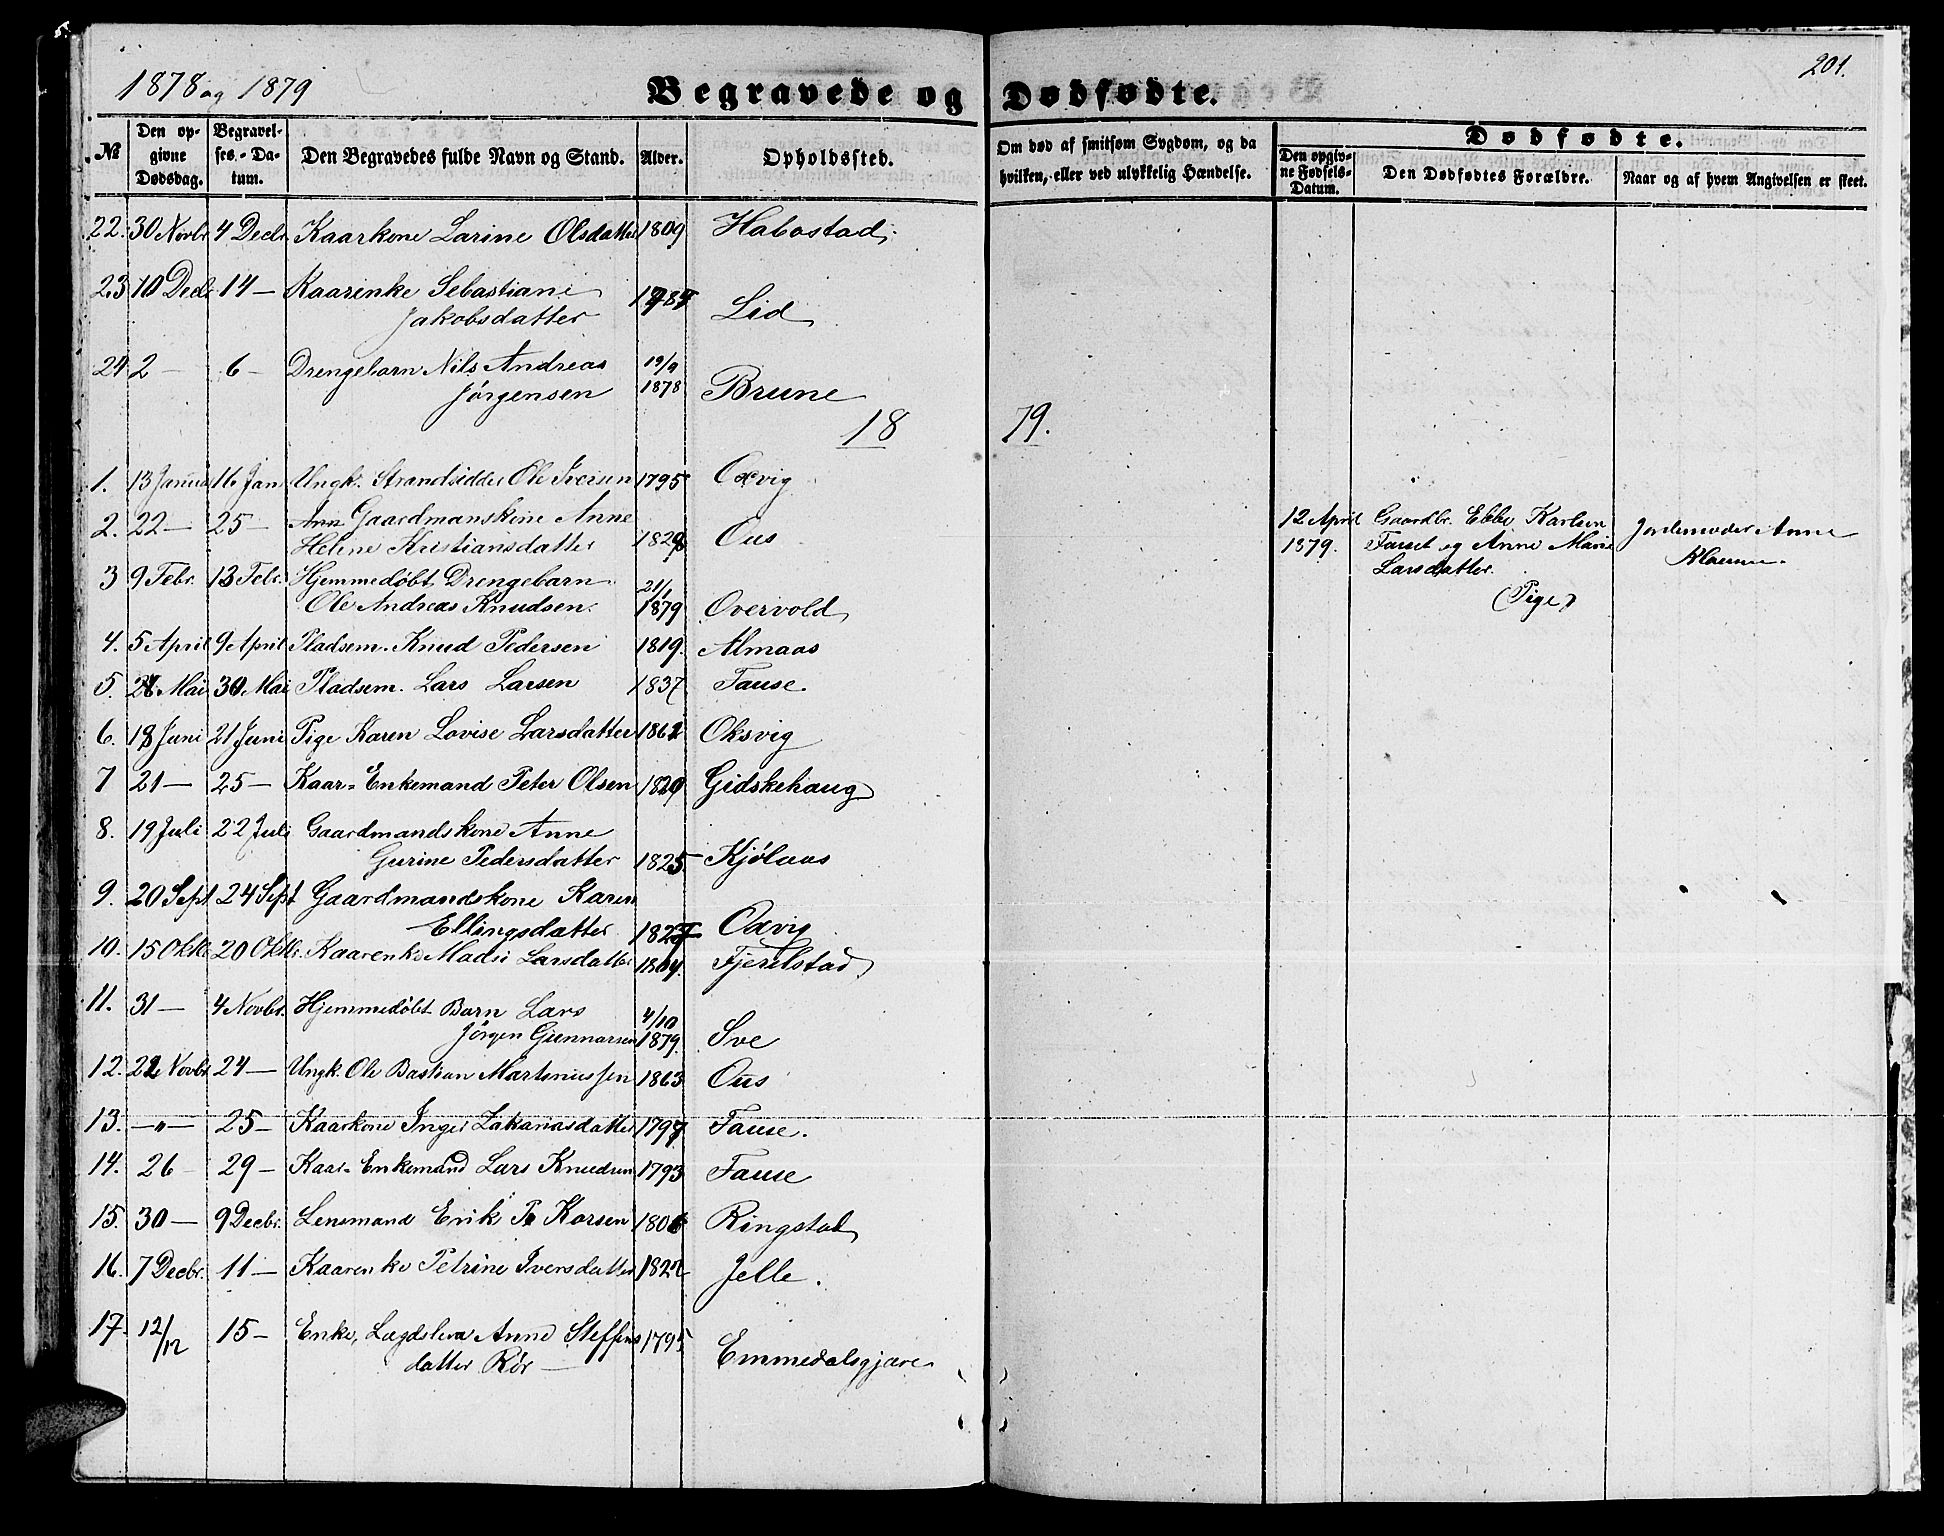 1878 og 1879
201.
Begravede og Dødfødte.
№ Den opgivne Dødsdag. Begravelses-Datum. Den Begravedes fulde Navn og Stand. Alder. Opholdssted. Om død af smitsom Sygdom, og da hvilken, eller ved ulykkelig Hændelse. Dødfødte. Den opgivne Fødsels-Datum. Den Dødfødtes Forældre. Naar og af hvem Angivelsen er skeet.
22. 30 Novbr 4 Decbr. Kaarkone Larine Olsdatter 1809 Habostad
23 10 Decbr 14 — Kaarenke Sebastiane
Jakobsdatter Lid
24 2 — 6 — Drengebarn Nils Andreas 19/9
Jørgensen 1878 Brune
1879.
1. 13 Januar 16 Jan Ungk. Strandsidder Ole Iversen 1795 Oxvig
2. 22 — 25 — Gaardmanskone Anne
Helene Kristiansdatter Ous
3 9 Febr. 13 Febr. Hjemmedøbt Drengebarn 21/1
Ole Andreas Knudsen. 1879 Overvold
4. 5 April 9 April Pladsem. Knud Pedersen 1819. Almaas
5. Mai 30 Mai Pladsem. Lars Larsen 1837 Fause.
6. 18 Juni 21 Juni Pige Karen Lovise Larsdatter Oksvig
7 21 — 25 — Kaar-Enkemand Peter Olsen Gidskehaug
8. 19 Juli 22 Juli Gaardmandskone Anne
Gurine Pedersdatter 1825 Kjølaas
9. 20 Sept. 24 Sept Gaardmandskone Karen
Ellingsdatter Oxvig
10. 15 Oktbr 20 Oktbr. Kaarenke Madsi Larsdatter 1804. Fjørlstad
11. 31 — 4 Novbr. Hjemmedøbt Barn Lars 4/10
Jørgen Gunnarsen 1879. Sve
12. Novbr 24 — Ungk. Ole Bastian Martinussen 1863 Ous
13. —„— 25 — Kaarkone Inger Zakariasdatter 1797 Fause.
14. 26 29 — Kaar-Enkemand Lars Knudsen 1793 Fause
15. 30 — 9 Decbr. Lensmand Erik P. Korsen Ringstad
16. 7 Decbr. 11 — Kaarenke Petrine Iversdatter Jelle.
17. 12/12 15 — Enke, Lægdslem Anne Steffens 1795
datter Rør — Emmedalsgjære
12 April Gaardbr. Ebbe Karlsen Jordemoder Anne
1879. Fauset og Anne Marie
Larsdatter.
(Pige)